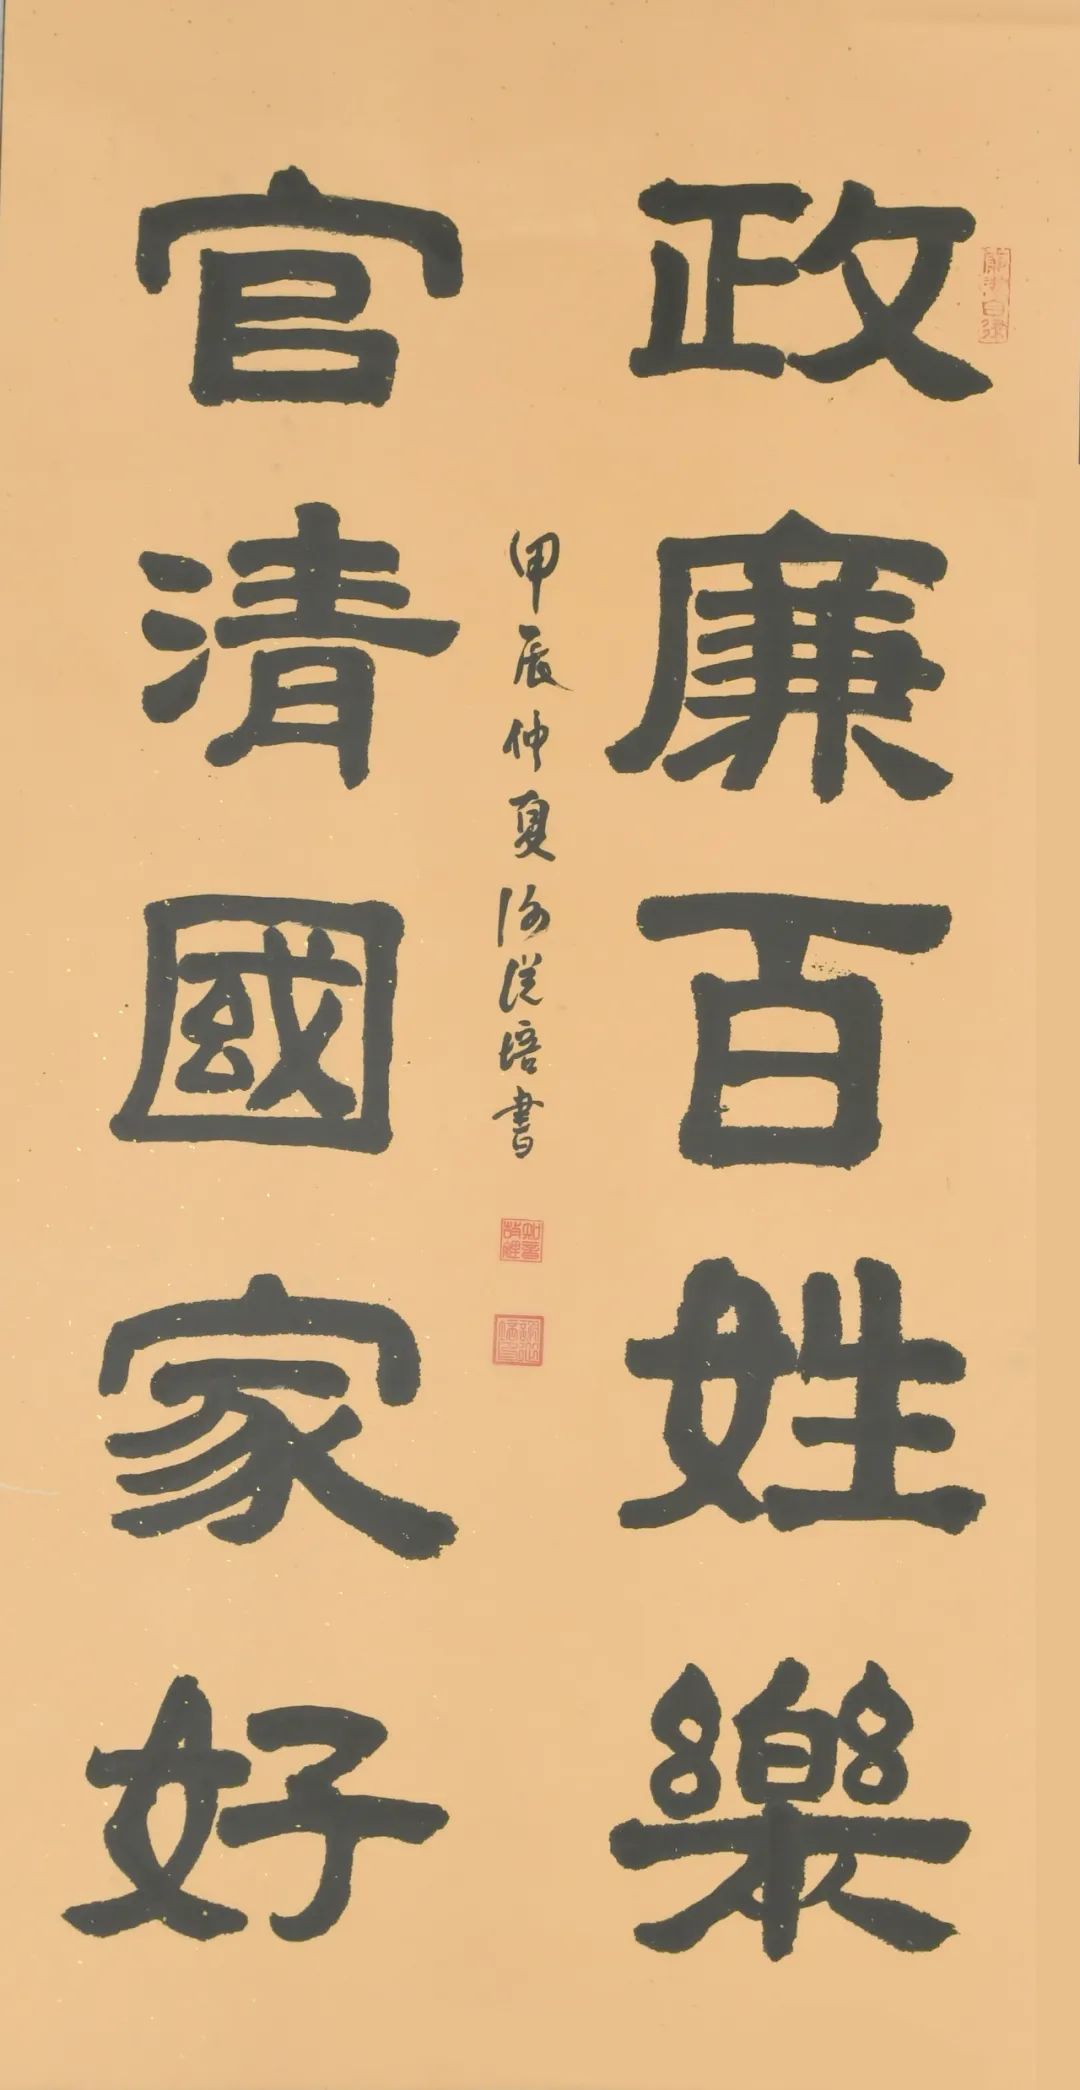 政廉百姓樂
官清國家好
甲辰仲夏 培書